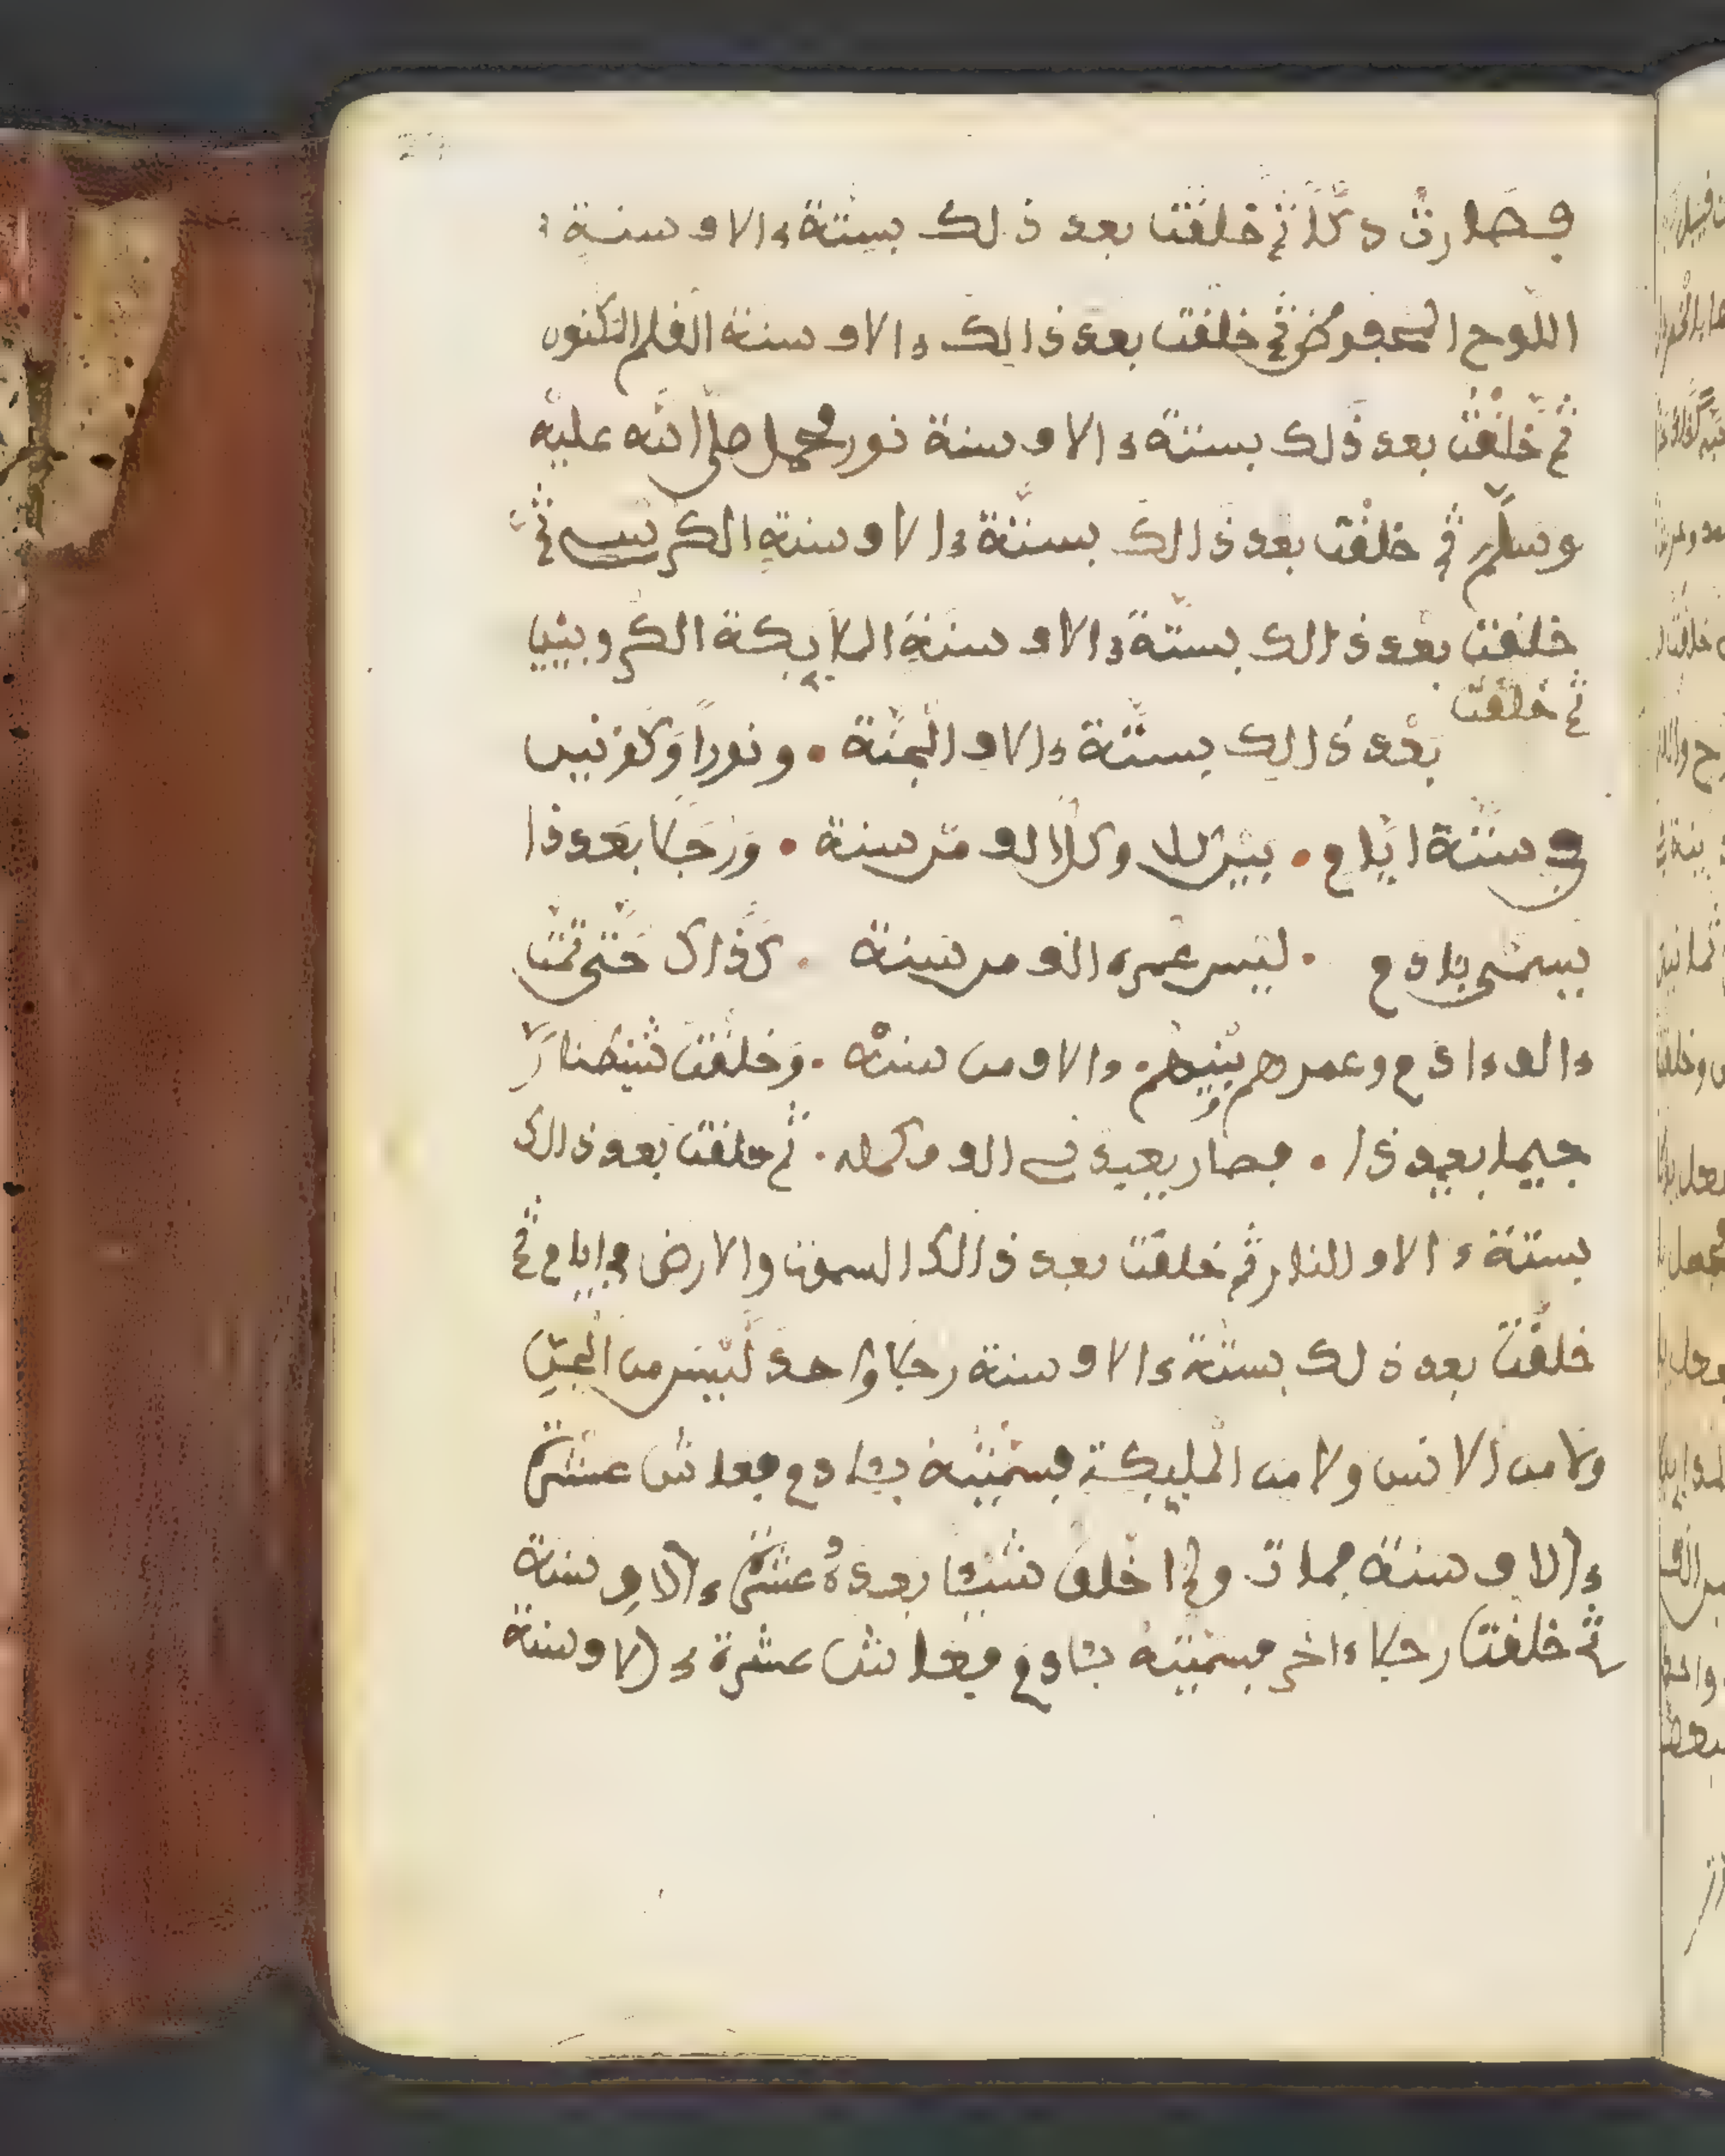 فصارت دكّا ثم خلقت بعد ذلك بستة ءالاف سنة
اللوح المحفوض ثم خلقت بعد ذالك ءالاف سنة القلم المكنون
ثم خلقت بعد ذلك بستة ءالاف سنة نور محمد صلى الله عليه
وسلم ثم خلقت بعد ذالك بستة ءالاف سنة الكرسي ثم
خلقت بعد ذالك بستة ءالاف سنة الملايكة الكروبيين
ثم خلقت
بعد ذالك بستة ءالاف الجنة ونورا
في ستة ايام وكل الف من سنة ورجلا بعد ذا
ليس عمره الف من سنة كذاك حتى تمت
ءالف ءادم وعمرهم ءالاف من سنة وخلقت
جيما بعيد ذا فصار الف ثم خلقت بعد ذالك
بستة ءالاف النار ثم خلقت بعد ذالك السموت والارض في ايام ثم
خلقت بعد ذلك بستة ءالاف سنة رجلا واحد ليس من الجن
ولا من الانس ولا من المليكة فسميته بئادم فعاش عشرة
ءالاف سنة فمات ولم اخلق شيئا بعده عشرة ءالاف سنة
ثم خلقت رجلا ءاخر فسميته بئادم فعاش عشرة ءالاف سنة